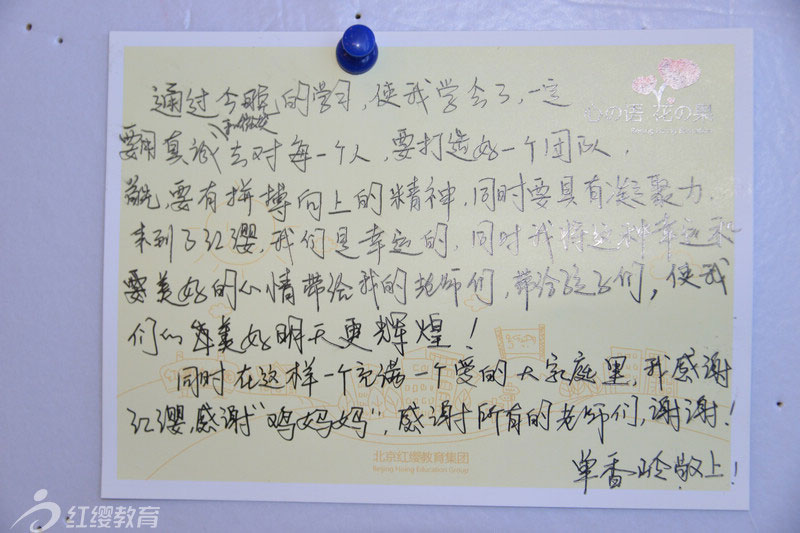 心の语 花の果
通过今晚的学习,使我学会了,一定
要用真诚去对每一个人,要打造好一个团队,
首先,要有拼搏向上的精神,同时要具有凝聚力.
来到了红缨,我们是幸运的,同时我将这种幸运和
要美好的心情带给我的老师们,带给孩子们,使我
们的美好明天更辉煌!
同时在这样一个充满一个爱的大家庭里,我感谢
红缨,感谢"鸡妈妈",感谢所有的老师们,谢谢!
单香玲敬上!
北京红缨教育集团
Beijing Hoing Education Group
红缨教育